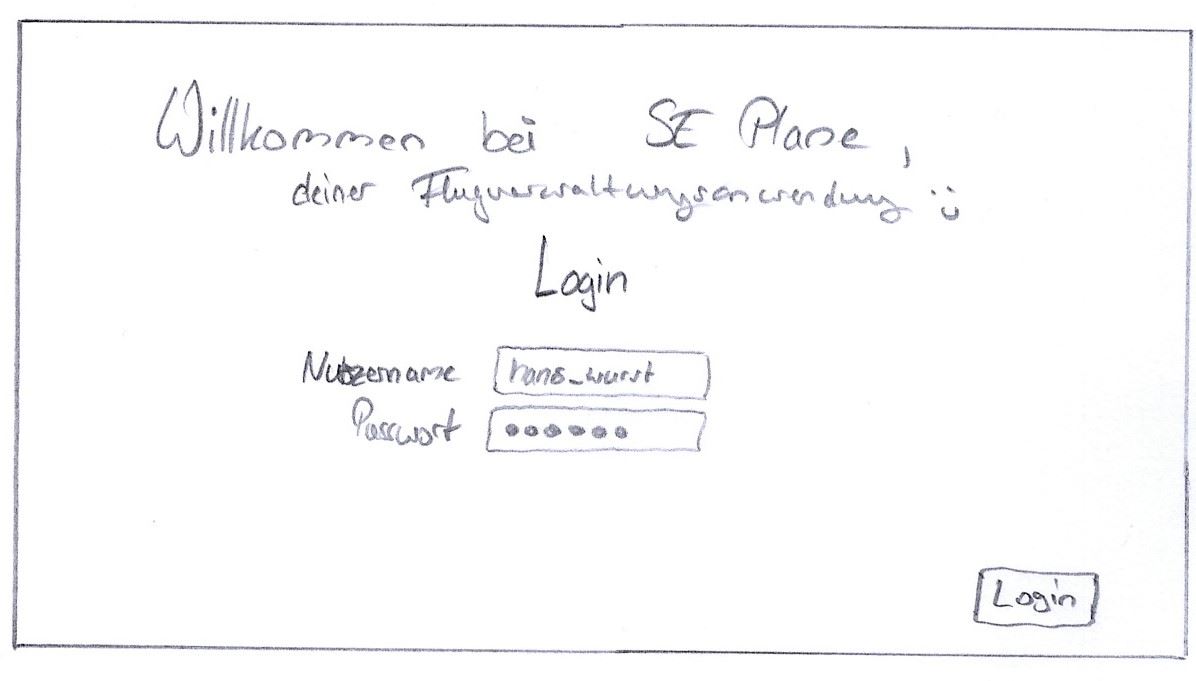 Willkommen bei SE Plane,
deiner Flugverwaltungsanwendung :)
Login
Nutzername hans_wurst
Passwort ••••••
Login